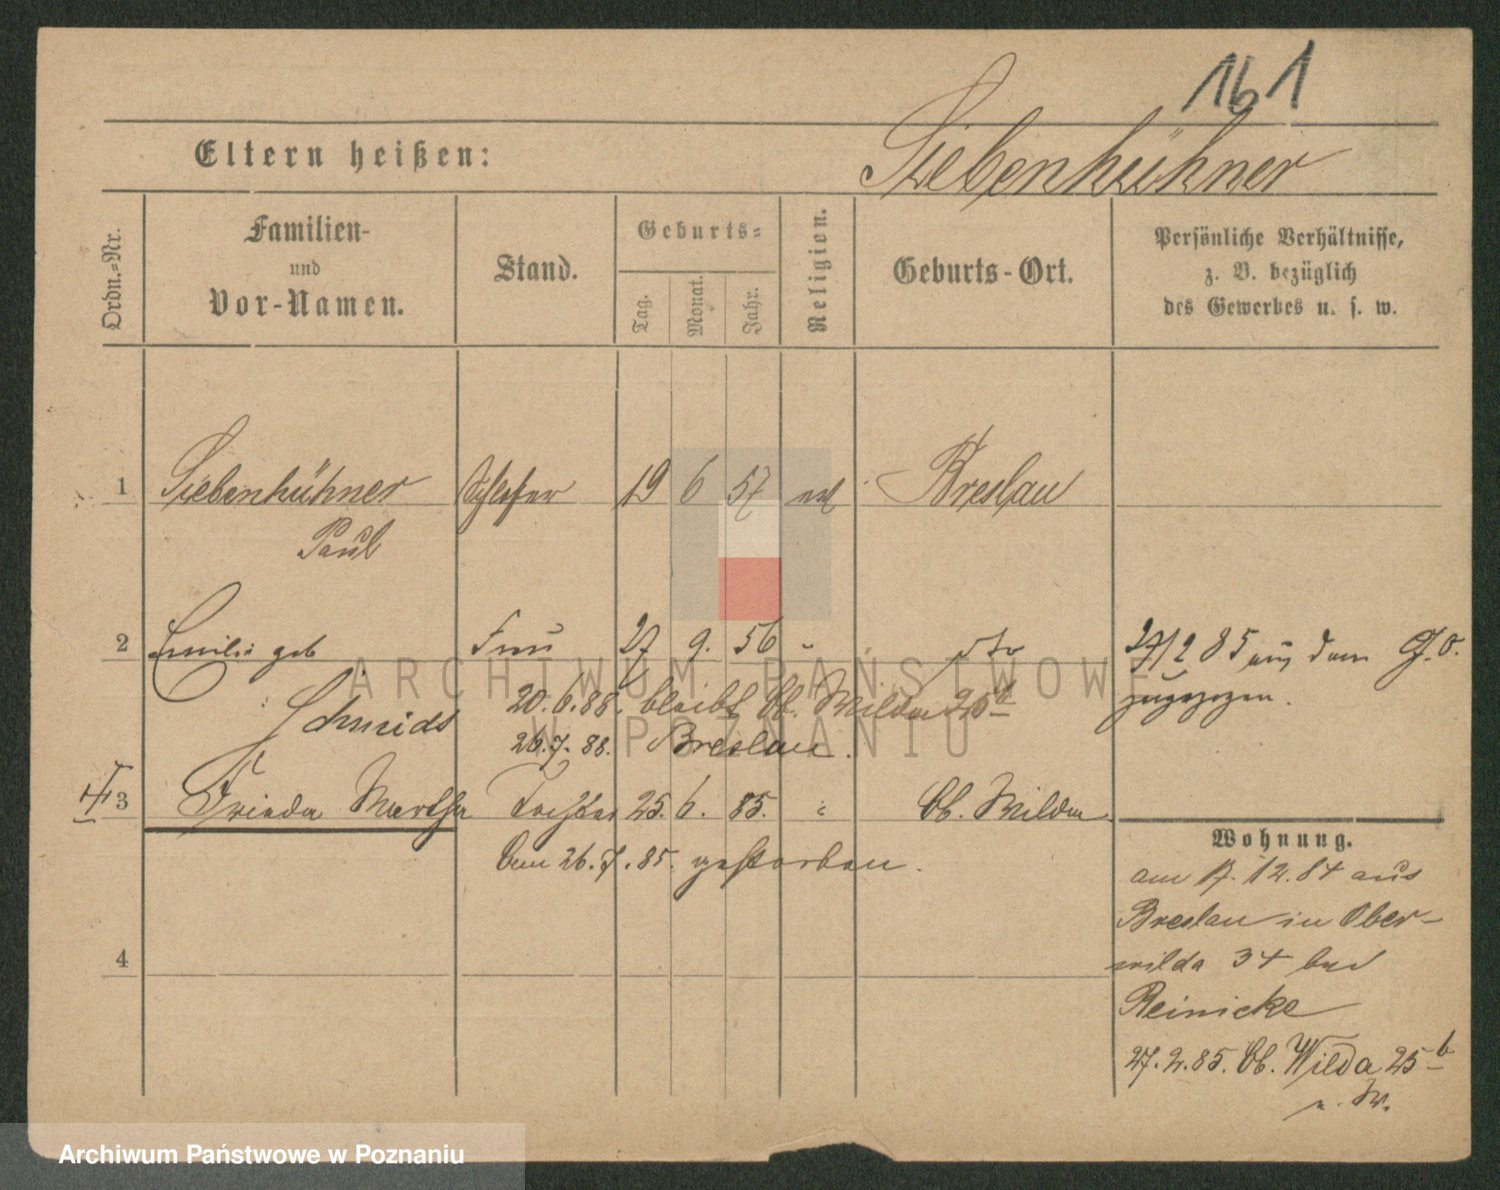 161
Eltern heißen: Siebenhühner
Ordn.-Nr.
Familien-
und
Vor-Namen.
Stand.
Geburts-
Tag.
Monat.
Jahr.
Religion.
Geburts-Ort.
Persönliche Verhältnisse,
z. B. bezüglich
des Gewerbes u. s. w.
1 Siebenhühner Schlosser 19 6 57 Breslau
Paul
2 Emilie geb Frau 27 9. 56 " dto
Schmids
20.6.88. bleibt Ob. Wilda 25b
26.7.88. Breslau.
27/2 85 aus dem G. O.
zugezogen.
3 Frieda Martha Tochter 25. 6. 85. " Ob. Wilda
Am 26.7.85. gestorben.
4
Wohnung.
am 17.12.84 aus
Breslau in Ober-
wilda 34 bei
Reinicke
27.2.85. Ob. Wilda 25b
ARCHIWUM PAŃSTWOWE
W POZNANIU
Archiwum Państwowe w Poznaniu